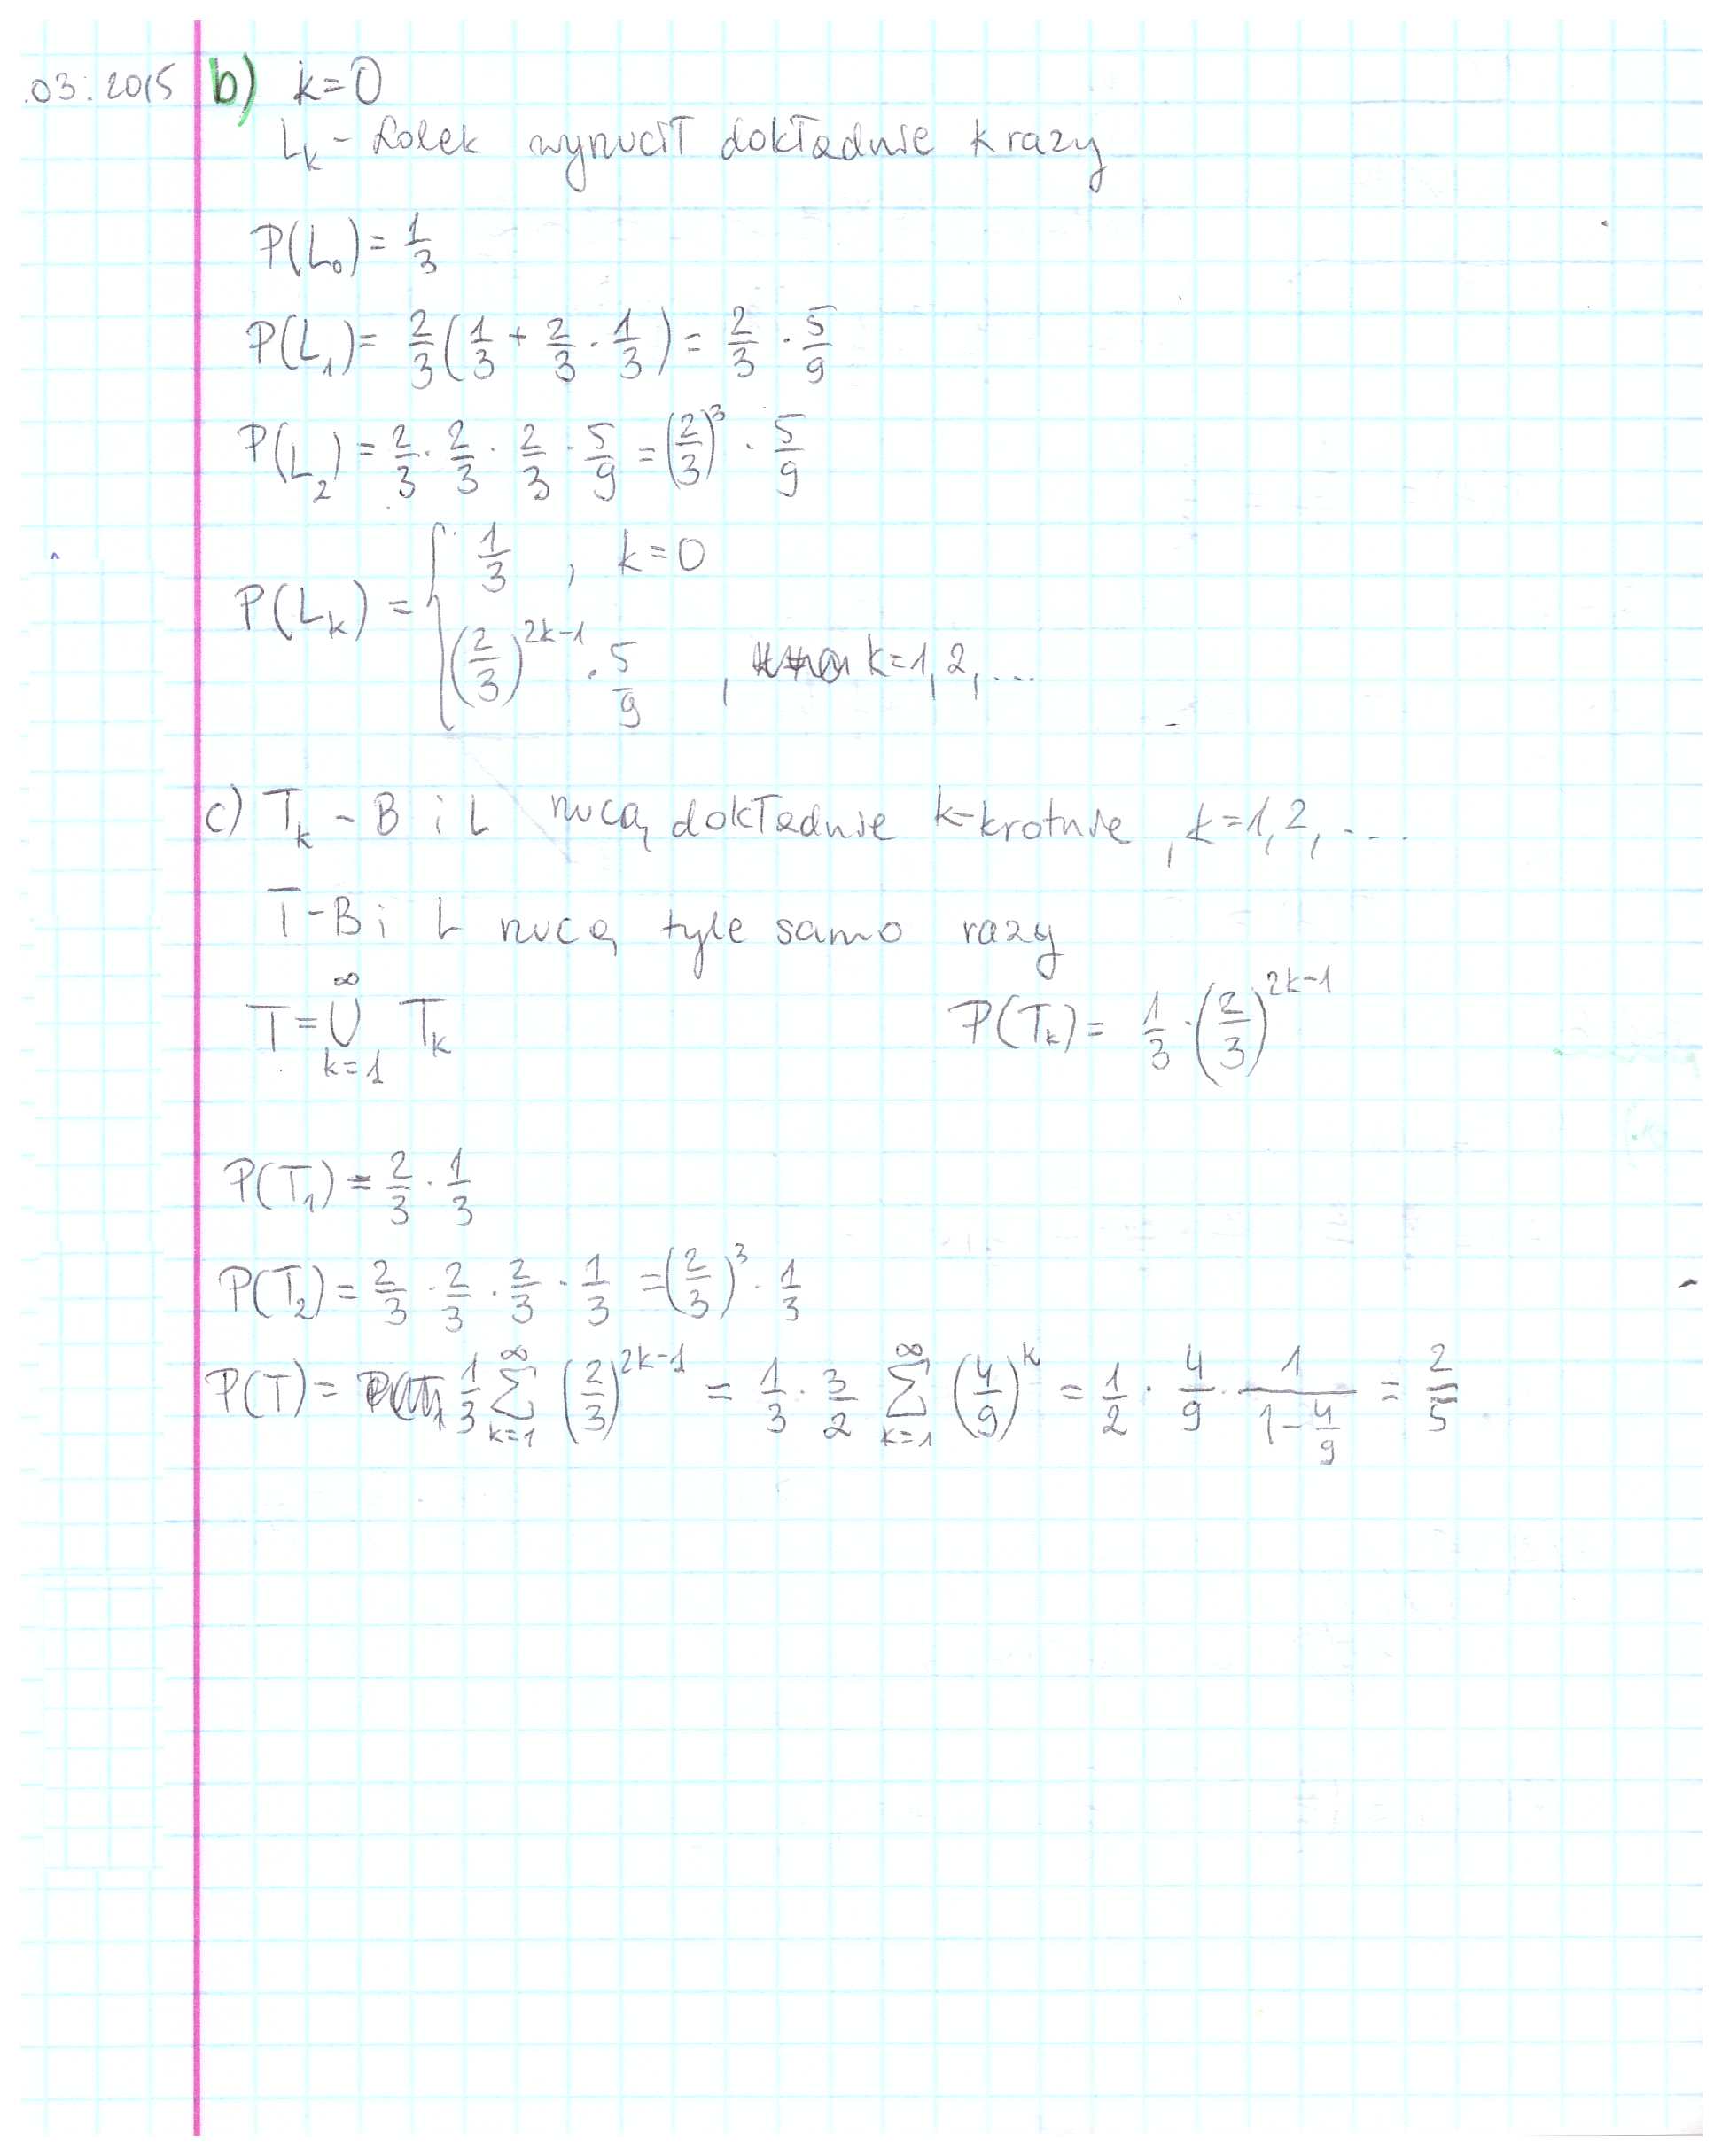 .03.2015 b) k=0
L_k - Lolek wyrzucił dokładnie k razy
P(L_0) = 1/3
P(L_1) = 2/3 (1/3 + 2/3 · 1/3) = 2/3 · 5/9
P(L_2) = 2/3 · 2/3 · 2/3 · 5/9 = (2/3)^3 · 5/9
P(L_k) = { 1/3 , k=0
(2/3)^{2k-1} · 5/9 , k=1,2,...
c) T_k - B i L rzucą dokładnie k-krotnie, k=1,2,...
T - B i L rzucą tyle samo razy
T = ∪_{k=1}^{∞} T_k P(T_k) = 1/3 · (2/3)^{2k-1}
P(T_1) = 2/3 · 1/3
P(T_2) = 2/3 · 2/3 · 2/3 · 1/3 = (2/3)^3 · 1/3
P(T) = 1/3 ∑_{k=1}^{∞} (2/3)^{2k-1} = 1/3 · 3/2 ∑_{k=1}^{∞} (4/9)^k = 1/2 · 4/9 · 1/(1-4/9) = 2/5